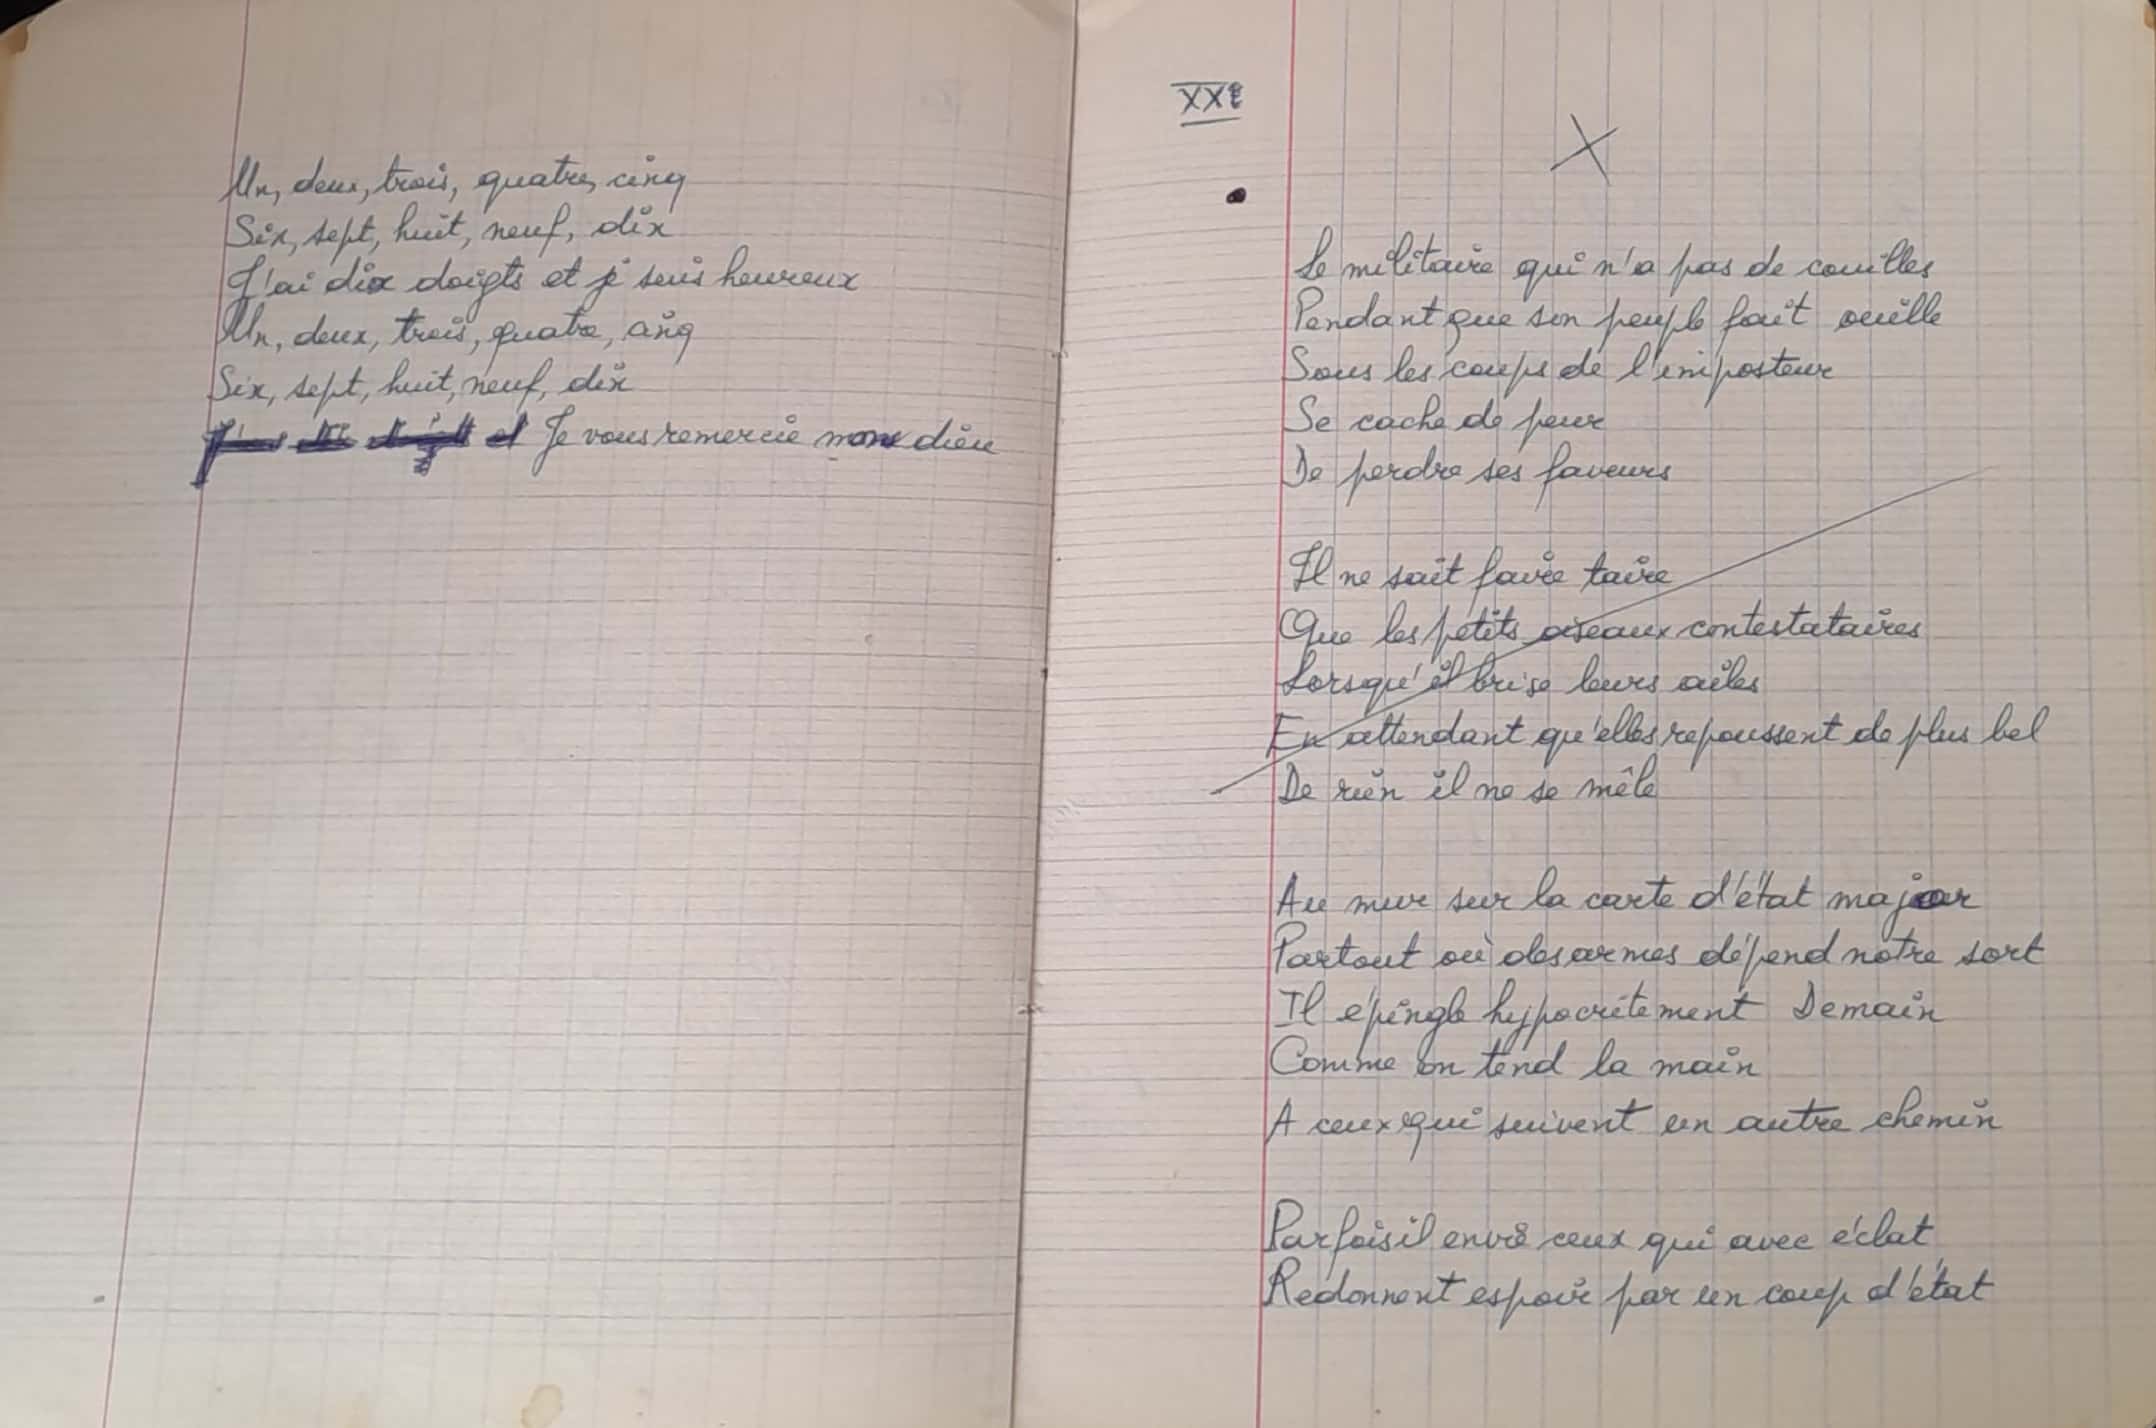 Un, deux, trois, quatre, cinq
Six, sept, huit, neuf, dix
J'ai dix doigts et je suis heureux
Un, deux, trois, quatre, cinq
Six, sept, huit, neuf, dix
Je vous remercie mon dieu
XXe
Le militaire qui n'a pas de couilles
Pendant que son peuple fait ouille
Sous les coups de l'imposteur
Se cache de peur
De perdre ses faveurs
Il ne sait faire taire
Que les petits oiseaux contestataires
Lorsqu'il brise leurs ailes
En attendant qu'elles repoussent de plus bel
De rien il ne se mêle
Au mur sur la carte d'état major
Partout où des armes dépend notre sort
Il épingle hypocritement Demain
Comme on tend la main
A ceux qui suivent un autre chemin
Parfois il envie ceux qui avec éclat
Redonnent espoir par un coup d'état